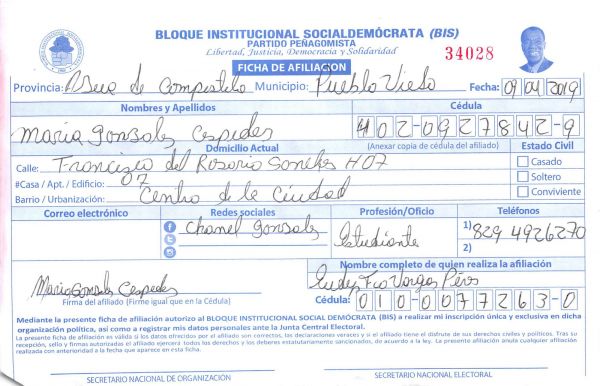 BLOQUE INSTITUCIONAL SOCIALDEMÓCRATA (BIS)
PARTIDO PEÑAGOMISTA
Libertad, Justicia, Democracia y Solidaridad
34028
FICHA DE AFILIACIÓN
Provincia: Azua de Compostela Municipio: Pueblo Viejo Fecha: 09 04 2019
Nombres y Apellidos Cédula
Maria Gonsales Cespedes 402-0927842-9
Domicilio Actual (Anexar copia de cédula del afiliado) Estado Civil
Calle: Francizco del Rosario Sanches H07 Casado
#Casa / Apt. / Edificio: 07 Soltero
Barrio / Urbanización: Centro de la Ciudad Conviviente
Correo electrónico Redes sociales Profesión/Oficio Teléfonos
Chanel Gonsales Estudiante 1) 829 4926270
2)
Nombre completo de quien realiza la afiliación
Maria Gonsales Cespedes Fco Vargas
Firma del afiliado (Firme igual que en la Cédula) Cédula: 010-0077263-0
Mediante la presente ficha de afiliación autorizo al BLOQUE INSTITUCIONAL SOCIAL DEMÓCRATA (BIS) a realizar mi inscripción única y exclusiva en dicha
organización política, así como a registrar mis datos personales ante la Junta Central Electoral.
La presente ficha de afiliación es válida si los datos ofrecidos por el afiliado son correctos, las declaraciones veraces y si el afiliado tiene el disfrute de sus derechos civiles y políticos. Tras su
recepción, sello y firmas autorizadas el afiliado ejercerá todos los derechos y los deberes estatutariamente sancionados, de acuerdo a la ley. La presente afiliación anula cualquier afiliación
realizada con anterioridad a la fecha que aparece en esta ficha.
SECRETARIO NACIONAL DE ORGANIZACIÓN SECRETARIO NACIONAL ELECTORAL